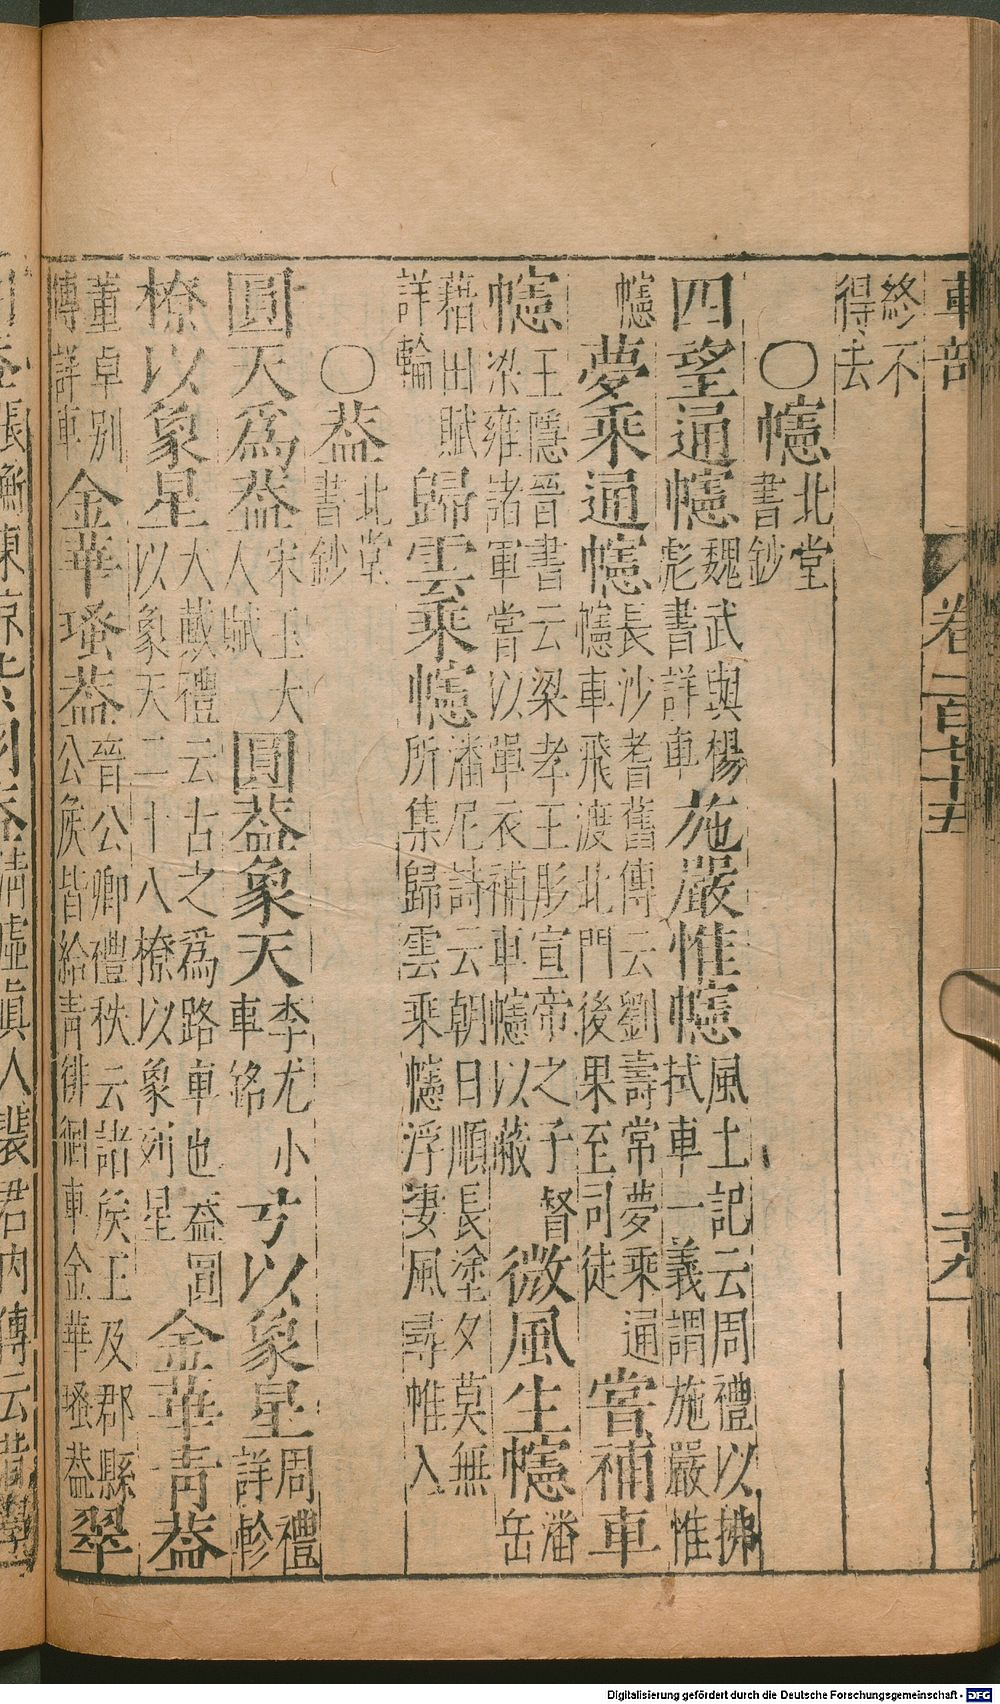 車部 卷一百七十五 二十九
終不得去
○幰北堂書鈔
四望通幰魏武與楊彪書詳車施嚴惟幰風土記云周禮以拂拭車一義謂施嚴惟
幰夢乘通幰長沙耆舊傳云劉壽常夢乘通幰車飛渡北門後果至司徒嘗補車
幰王隱晉書云梁孝王肜宣帝之子督梁雍諸軍嘗以單衣補車幰以蔽微風生幰潘岳
藉田賦詳輪歸雲乘幰潘尼詩云朝日順長塗夕莫無所集歸雲乘幰浮淒風尋帷入
○葢北堂書鈔
圓天爲葢宋玉大人賦圓葢象天李尤小車銘弓以象星周禮詳軫
橑以象星大戴禮云古之爲路車也葢圓以象天二十八橑以象列星金華青葢
董卓別傳詳車金華瑵葢晉公卿禮秩云諸矦王及郡縣公矦皆給青徘徊車金華瑵葢翠
羽葢張衡東京紫羽葢清虛眞人裴君內傳云
Digitalisierung gefördert durch die Deutsche Forschungsgemeinschaft - DFG